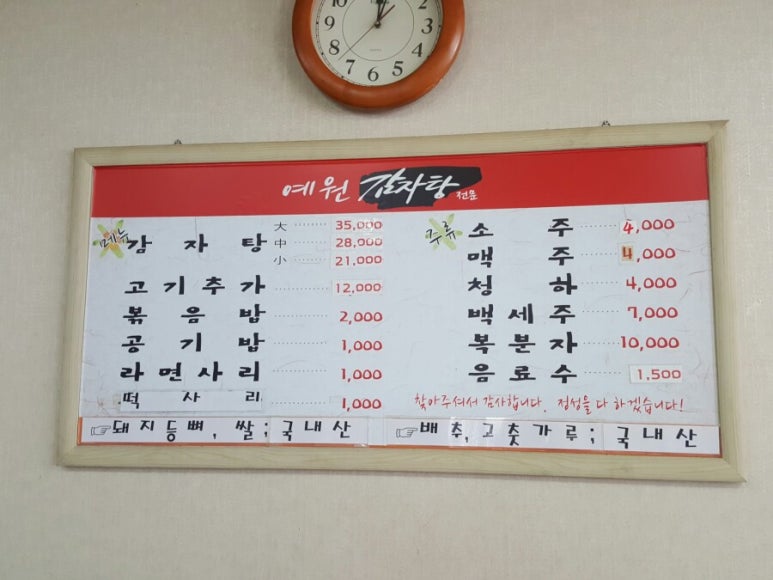 예원 감자탕 전문
메뉴
감자탕 大 35,000
中 28,000
小 21,000
고기추가 12,000
볶음밥 2,000
공기밥 1,000
라면사리 1,000
떡사리 1,000
주류
소주 4,000
맥주 4,000
청하 4,000
백세주 7,000
복분자 10,000
음료수 1,500
찾아주셔서 감사합니다. 정성을 다 하겠습니다!
☞돼지등뼈, 쌀; 국내산
☞배추,고춧가루; 국내산
12
1
2
3
4
5
6
7
8
9